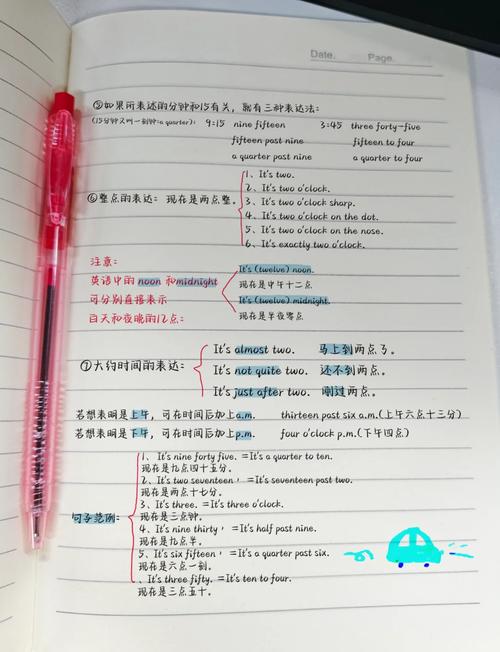 Date.    Page.
⑤如果所表达的分钟和15有关，就有三种表达法：
(15分钟又叫一刻钟:a quarter)： 9:15 nine fifteen    3:45 three forty-five
fifteen past nine    fifteen to four
a quarter past nine    a quarter to four
1、It's two.
2、It's two o'clock.
⑥整点的表达：现在是两点整。 3、It's two o'clock sharp.
4、It's two o'clock on the dot.
5、It's two o'clock on the nose.
6、It's exactly two o'clock.
注意：
英语中的noon 和midnight
可分别直接表示
白天和夜晚的12点：
It's (twelve) noon.
现在是中午十二点
It's (twelve) midnight.
现在是半夜零点
⑦大约时间的表达：
It's almost two.    马上到两点了。
It's not quite two.    还不到两点。
It's just after two.    刚过两点。
若想表明是上午，可在时间后加上a.m.    thirteen past six a.m.(上午六点十三分)
若想表明是下午，可在时间后加上p.m.    four o'clock p.m.(下午四点)
句子范例：
1、It's nine forty five. =It's a quarter to ten.
现在是九点四十五分。
2、It's two seventeen，=It's seventeen past two.
现在是两点十七分。
3、It's three. =It's three o'clock.
现在是三点钟。
4、It's nine thirty，=It's half past nine.
现在是九点半。
5、It's six fifteen，=It's a quarter past six.
现在是六点一刻。
、It's three fifty. =It's ten to four.
现在是三点五十。